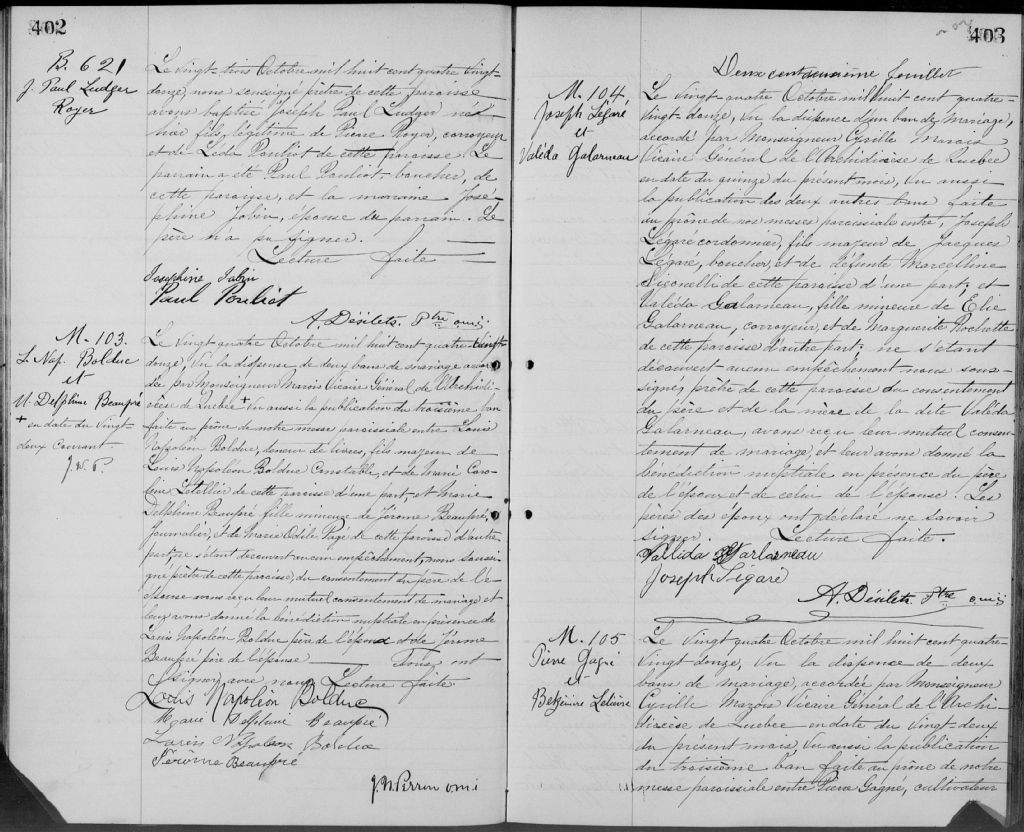 402
B. 621
J. Paul Ludger
Royer
Le vingt-trois Octobre mil huit cent quatre vingt-
douze, nous soussigné prêtre de cette paroisse
avons baptisé Joseph Paul Ludger né
hier fils légitime de Pierre Royer, corroyeur
et de Léda Pouliot de cette paroisse. Le
parrain a été Paul Pouliot boucher, de
cette paroisse, et la marraine José-
phine Jobin, épouse du parrain. Le
père n'a pu signer.
Lecture faite
Josephine Jobin
Paul Pouliot
A. Désilets. Ptre omi
M. 103.
L. Nap. Bolduc
et
M. Delphine Beaupré
+ en date du vingt-
deux Courant.
J. W. P.
Le vingt-quatre Octobre mil huit cent quatre-vingt-
douze, Vu la dispense de deux bans de mariage accor-
dée par Monseigneur Marois Vicaire Général de l'Archidi-
ocèse de Québec + Vu aussi la publication du troisième ban
faite au prône de notre messe paroissiale entre Louis
Napoléon Bolduc, teneur de livres, fils majeur de
Louis Napoléon Bolduc Constable, et de Marie Caro-
line Letellier de cette paroisse d'une part et Marie
Delphine Beaupré fille mineure de Jérôme Beaupré,
Journalier, & de Marie Odile Pagé de cette paroisse d'autre
part, ne s'étant découvert aucun empêchement, nous soussi-
gné prêtre de cette paroisse, du consentement du père de l'é-
pouse avons reçu leur mutuel consentement de mariage et
leur avons donné la bénédiction nuptiale en présence de
Louis Napoléon Bolduc père de l'époux & de Jérôme
Beaupré père de l'épouse Tous ont
signé avec nous. Lecture faite
Louis Napoléon Bolduc
Marie Delphine Beaupré
Louis Napoléon Bolduc
Jérôme Beaupré
J. W. Perron omi
403
Deux cent deuxième feuillet
M. 104
Joseph Légaré
et
Valéda Galarneau
Le vingt-quatre Octobre mil huit cent quatre-
vingt-douze, Vu la dispense d'un ban de mariage,
accordé par Monseigneur Cyrille Marois
Vicaire Général de l'Archidiocèse de Québec
en date du quinze du présent mois, Vu aussi
la publication des deux autres bans faite
au prône de nos messes paroissiales entre, Joseph
Légaré cordonnier, fils majeur de Jacques
Légaré, boucher, et de défunte Marcelline
de cette paroisse d'une part; et
Valéda Galarneau, fille mineure de Elie
Galarneau, corroyeur, et de Marguerite Rochette
de cette paroisse d'autre part; ne s'étant
découvert aucun empêchement nous sous-
signé, prêtre de cette paroisse du consentement
du père et de la mère de la dite Valéda
Galarneau, avons reçu leur mutuel consen-
tement de mariage, et leur avons donné la
bénédiction nuptiale en présence du père
de l'époux et de celui de l'épouse. Les
pères des époux ont déclaré ne savoir
signer. Lecture faite.
Vallida Garlarneau
Joseph Légaré
A. Désilets Ptre omi
M. 105
Pierre Gagné
et
Lelièvre
Le vingt-quatre Octobre mil huit cent quatre-
vingt-douze, Vu la dispense de deux
bans de mariage, accordée par Monseigneur
Cyrille Marois Vicaire Général de l'Archi-
diocèse de Québec en date du vingt-deux
du présent mois, Vu aussi la publication
du troisième ban faite au prône de notre
messe paroissiale entre Pierre Gagné, cultivateur